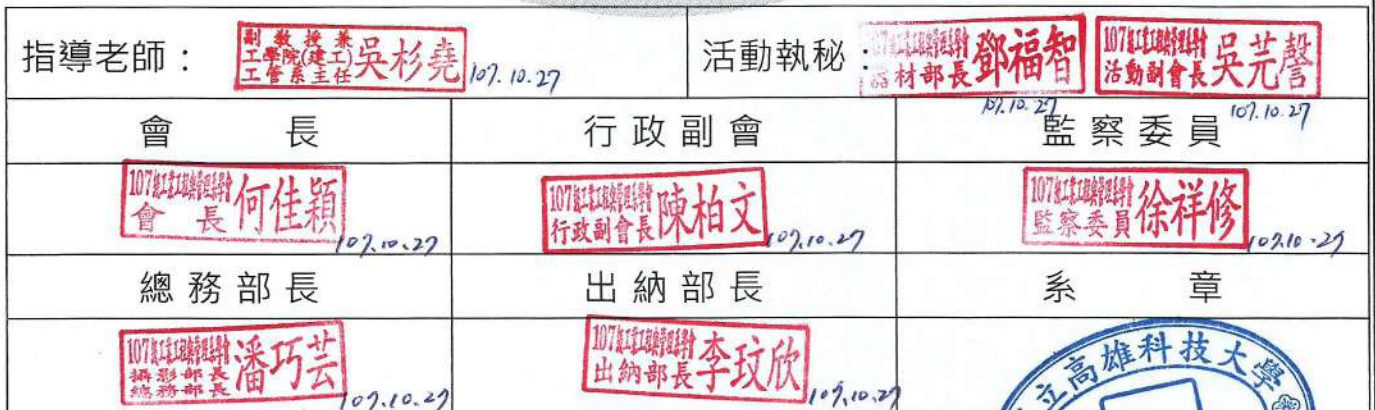 指導老師：
副教授兼
工學院(建工)
工管系主任
吳杉堯
107.10.27
活動執秘：
107級工業工程與管理系學會
器材部長
鄧福智
107.10.27
107級工業工程與管理系學會
活動副會長
吳芫謦
107.10.27
會長
行政副會
監察委員
107級工業工程與管理系學會
會長
何佳穎
107.10.27
107級工業工程與管理系學會
行政副會長
陳柏文
107.10.27
107級工業工程與管理系學會
監察委員
徐祥修
107.10.27
總務部長
出納部長
系章
107級工業工程與管理系學會
攝影部長
總務部長
潘巧芸
107.10.27
107級工業工程與管理系學會
出納部長
李玟欣
107.10.27
立高雄科技大學